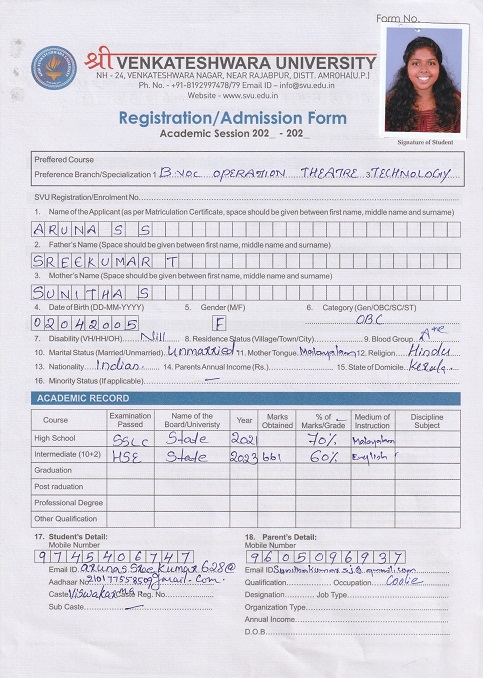 Form No.
श्री VENKATESHWARA UNIVERSITY
NH - 24, VENKATESHWARA NAGAR, NEAR RAJABPUR, DISTT. AMROHA(U.P.)
Ph. No. - +91-8192997478/79 Email ID – info@svu.edu.in
Website - www.svu.edu.in
Registration/Admission Form
Academic Session 202_ - 202_
Signature of Student
Preffered Course
Preference Branch/Specialization 1 B.VOC OPERATION THEATRE 3 TECHNOLOGY
SVU Registration/Enrolment No.
1. Name of the Applicant (as per Matriculation Certificate, space should be given between first name, middle name and surname)
ARUNA S S
2. Father's Name (Space should be given between first name, middle name and surname)
SREEKUMAR T
3. Mother's Name (Space should be given between first name, middle name and surname)
SUNITHA S
4. Date of Birth (DD-MM-YYYY) 5. Gender (M/F) 6. Category (Gen/OBC/SC/ST)
02042005 F OBC
7. Disability (VH/HH/OH) Nill 8. Residence Status (Village/Town/City) 9. Blood Group A+ve
10. Marital Status (Married/Unmarried). Unmarried 11. Mother Tongue. Malayalam 12. Religion Hindu
13. Nationality Indian 14. Parents Annual Income (Rs.) 15. State of Domicile. Kerala
16. Minority Status (If applicable) —
ACADEMIC RECORD
Course Examination Passed Name of the Board/Univeristy Year Marks Obtained % of Marks/Grade Medium of Instruction Discipline Subject
High School SSLC State 2021 70% Malayalam
Intermediate (10+2) HSE State 2023 661 60% English
Graduation
Post raduation
Professional Degree
Other Qualification
17. Student's Detail: 18. Parent's Detail:
Mobile Number Mobile Number
9745406747 9605096937
Email ID arunasSreekumar628@gmail.com. Email ID
Aadhaar No
Qualification Occupation Coolie
Caste Viswakarma Caste Reg. No. Designation Job Type
Sub Caste — Organization Type
Annual Income
D.O.B